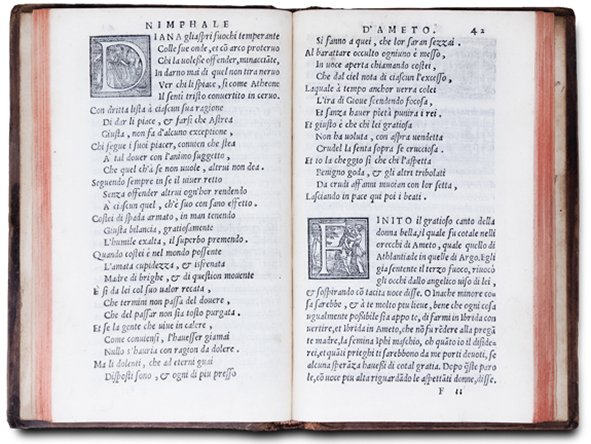 NIMPHALE
DIANA gli aspri fuochi temperante
Colle sue onde, et cō arco proteruo
Chi la uolesse offender, minacciāte,
In darno mai di quel non tira neruo
Ver chi li spiace, si come Atheone
Il senti tristo conuertito in ceruo.
Con dritta lista à ciascun sua ragione
Di dar li piace, & farsi che Astrea
Giusta, non fa d'alcuno exceptione,
Chi segue i suoi piacer, conuien che stea
A tal douer con l'animo suggetto,
Che quel ch'à se non uuole, altrui non dea.
Seguendo sempre in se il uiuer retto
Senza offender altrui ogn'hor rendendo
A ciascun quel, ch'è suo con sano effetto.
Costei di spada armato, in man tenendo
Giusta bilancia, gratiosamente
L'humile exalta, il superbo premendo.
Quando costei è nel mondo possente
L'amata cupidezza, & isfrenata
Madre di brighe, & di question mouente
E si da lei col suo ualor recata,
Che termini non passa del douere,
Che del passar non sia tosto purgata.
Et se la gente uiue in calere,
Come conuiensi, l'hauesser giamai
Nullo s'hauria con ragion da dolere.
Ma li dolenti, che ad eterni guai
Disposti sono, & ogni di piu presso
D'AMETO. 42
Si fanno a quei, che lor saran sezzai.
Al barattare occulto ogniuno è messo,
In uoce aperta chiamando costei,
Che dal ciel nota di ciascun l'excesso,
Laquale à tempo anchor uerra colei
L'ira di Gioue scendendo focosa,
Et sanza hauer pietà punira i rei.
Et giusto è che chi lei gratiosa
Non ha uoluta, con aspra uendetta
Crudel la senta sopra se crucciosa.
Et io la cheggio sì che chi l'aspetta
Benigno goda, & gli altri tribolati
Da crudi affanni muoian con lor setta,
Lasciando in pace qui poi i beati.
FINITO il gratioso canto della
donna bella, il quale fu cotale nelli
orecchi di Ameto, quale quello di
Athlantiale in quelle di Argo. Egli
gia sentente il terzo fuoco, riuocò
gli occhi dallo angelico uiso di lei,
& sospirando cō tacita uoce disse. O Inache minore co
sa sarebbe, & à te molto piu lieue, bene che ogni cosa
ugualmente possibile sia appo te, di farmi in Ibrida con
uertire, et Ibrida in Ameto, che nō fu rēdere alla pregā
te madre, la femina Iphi maschio, oh quāto io il diside-
rei, et quāti prieghi ti sarebbono da me porti deuoti, se
alcuna speranza hauessi di cotal gratta. Dopo q̄ste paro
le, cō uoce piu alta riguardādo le aspettati donne, disse.
F ii